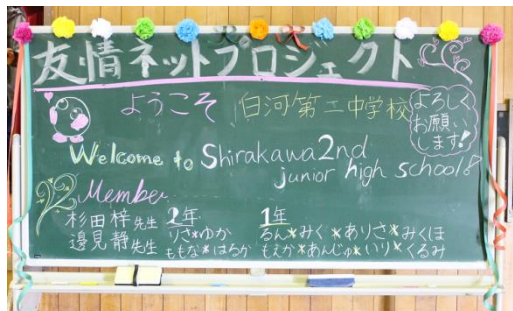 友情ネットプロジェクト
ようこそ 白河第二中学校
よろしく
お願い
します!
Welcome to Shirakawa2nd
junior high school!
Member
杉田梓先生 2年 1年
邊見静先生 りさ*ゆか るん*みぐ*ありさ*みくほ
ももな*はるか もえか*あんじゅ*いり*くるみ